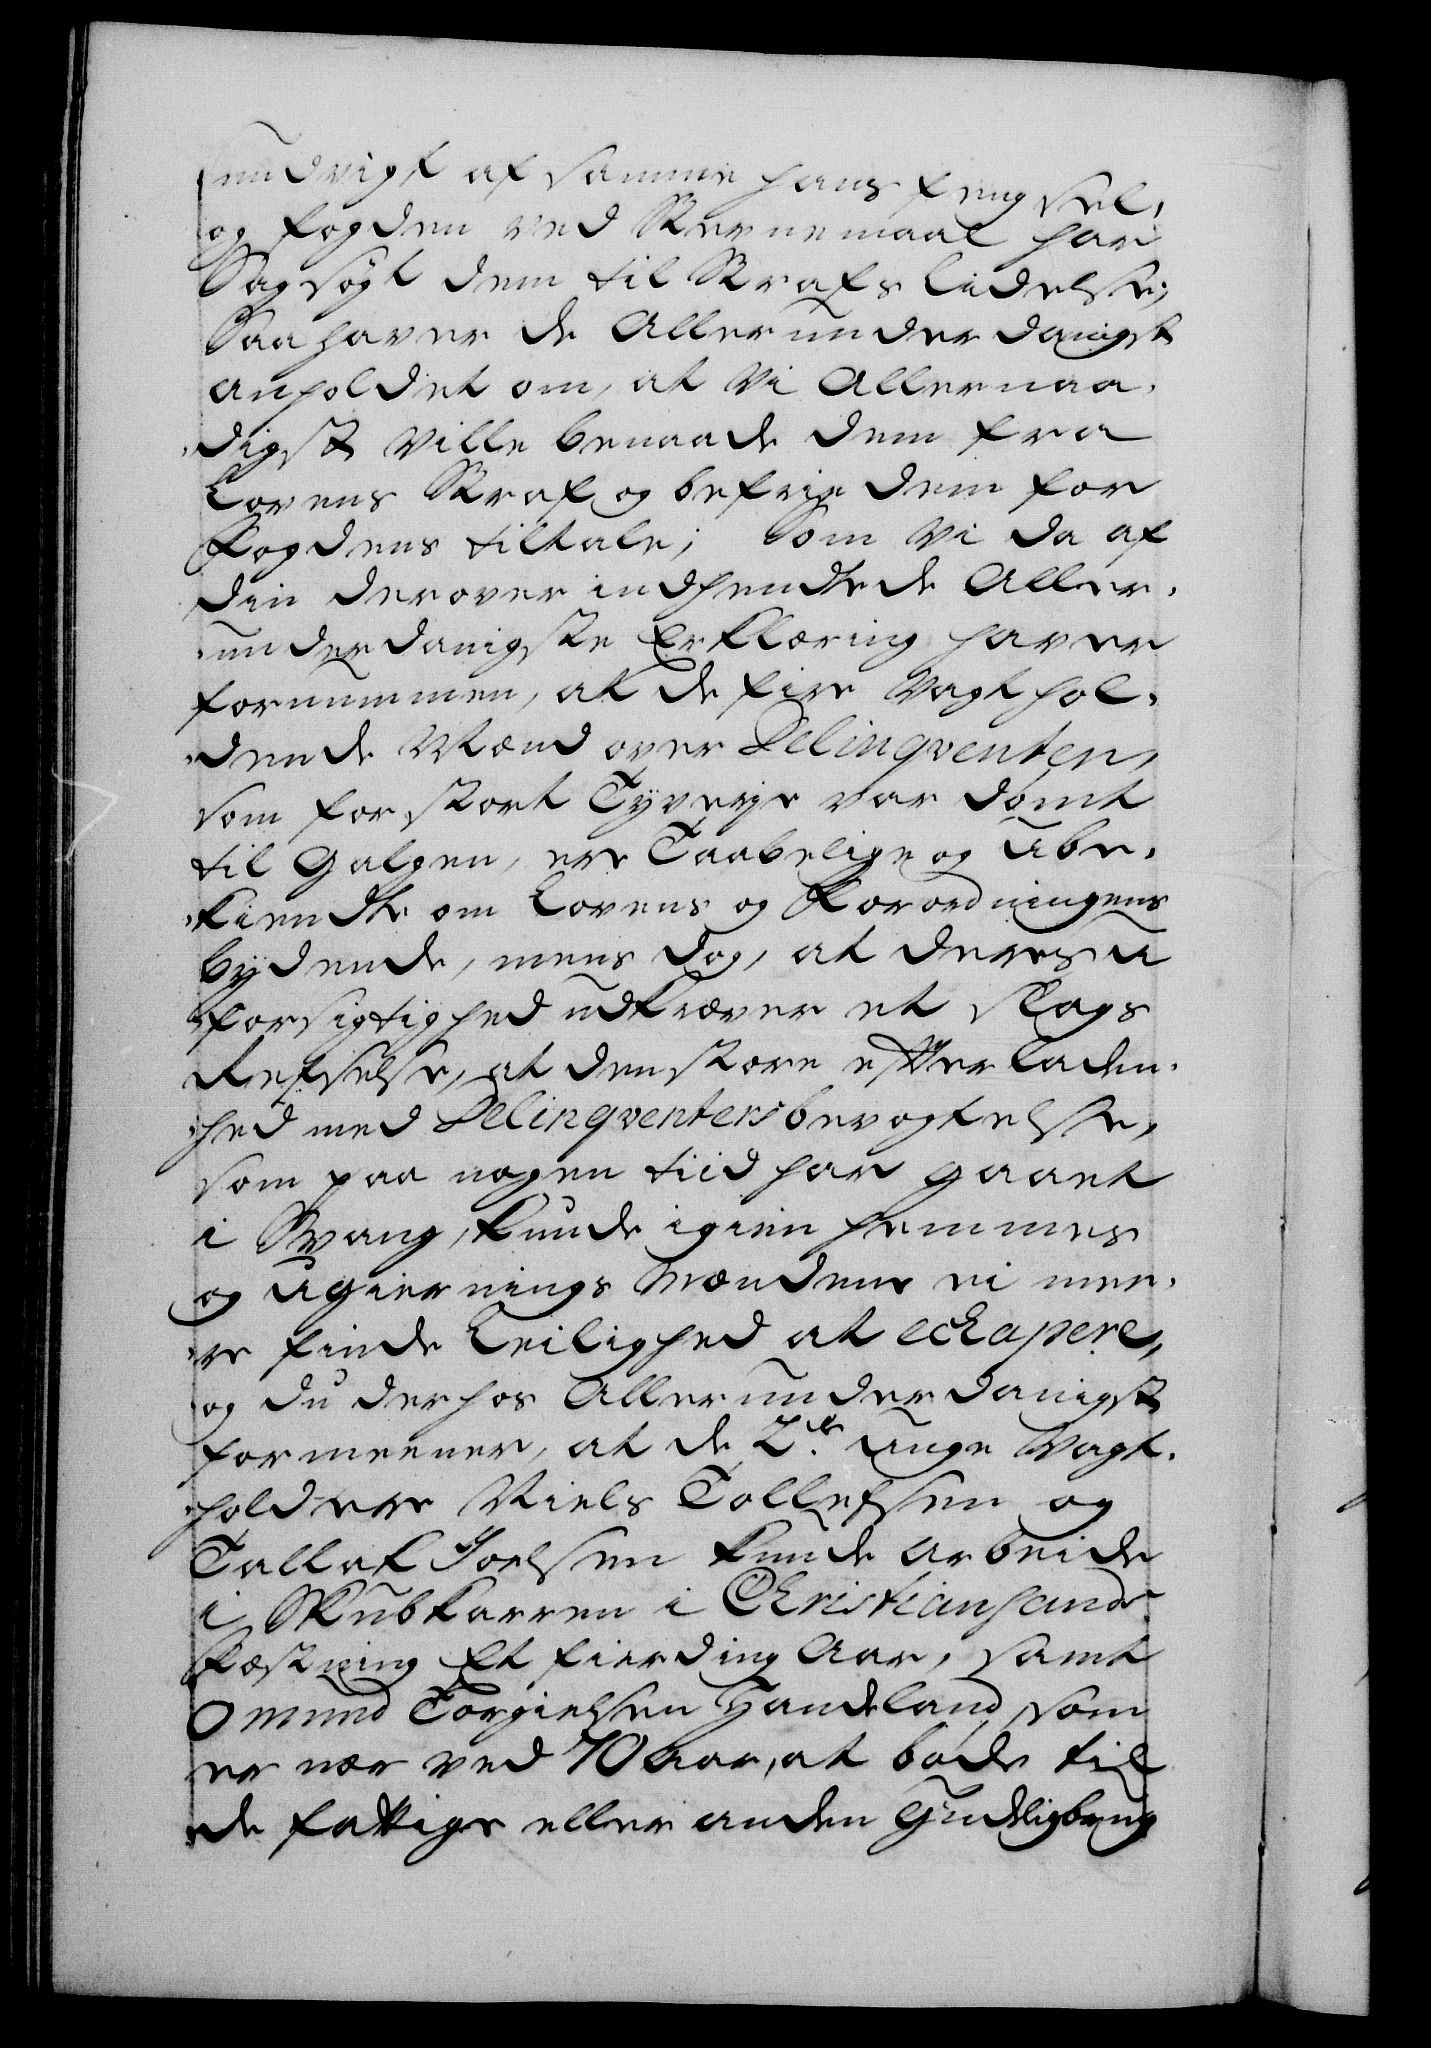 undvigt af samme hans fengsel,
og fogden ved Stevnemaal har
Sagsøgt dem til Strafs lidelse;
Saa haver de Allerunderdanigst
anholdet om, at Vi Allernaa-
digst Ville benaade dem fra
Lovens Straf og befrie dem for
Fogdens tiltale; Som Vi da af
din derover indhendtede Aller-
underdanigste Erklæring haver
fornummen, at de fire Vagt hol-
dende Mænd over Delinqventen,
som for stort Tyverje var dömt
til Galgen, ere Taabelige og Ube-
kiendte om Lovens og Forordningens
bydende, mens dog, at deres U
forsigtighed udkræver et slags
Refselse, at den store efterladen-
hed med Delinqventers bevogtelse,
som paa nogen tiid har gaaet
i Svang, kunde igien hemmes
og Ugiernings Mændene ei mee-
re finde Leilighed at echapere,
og du derhos Allerunderdanigst
formeener, at de 2de. unge Vagt-
holdere Niels Tollefsen og
Tallak Joelsen kunde arbeide
i Skubkarren i Christiansands
Fæstning Et fierding Aar, samt
Omund Torgielsen Handeland som
er nær ved 70 Aar, at böde til
de fattige eller anden Gudeligbrug